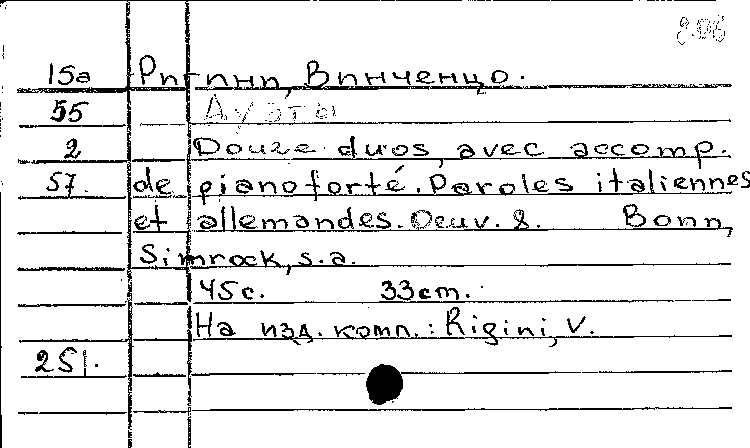 806
15а Ригини, Винченцо.
55 Дуэты
2 Douze duos, avec accomp.
57. de pianoforté. Paroles italiennes
et allemandes. Oeuv. 8. Bonn,
Simrock, s.a.
45с. 33cm.
На изд. комп.: Rigini, V.
251.